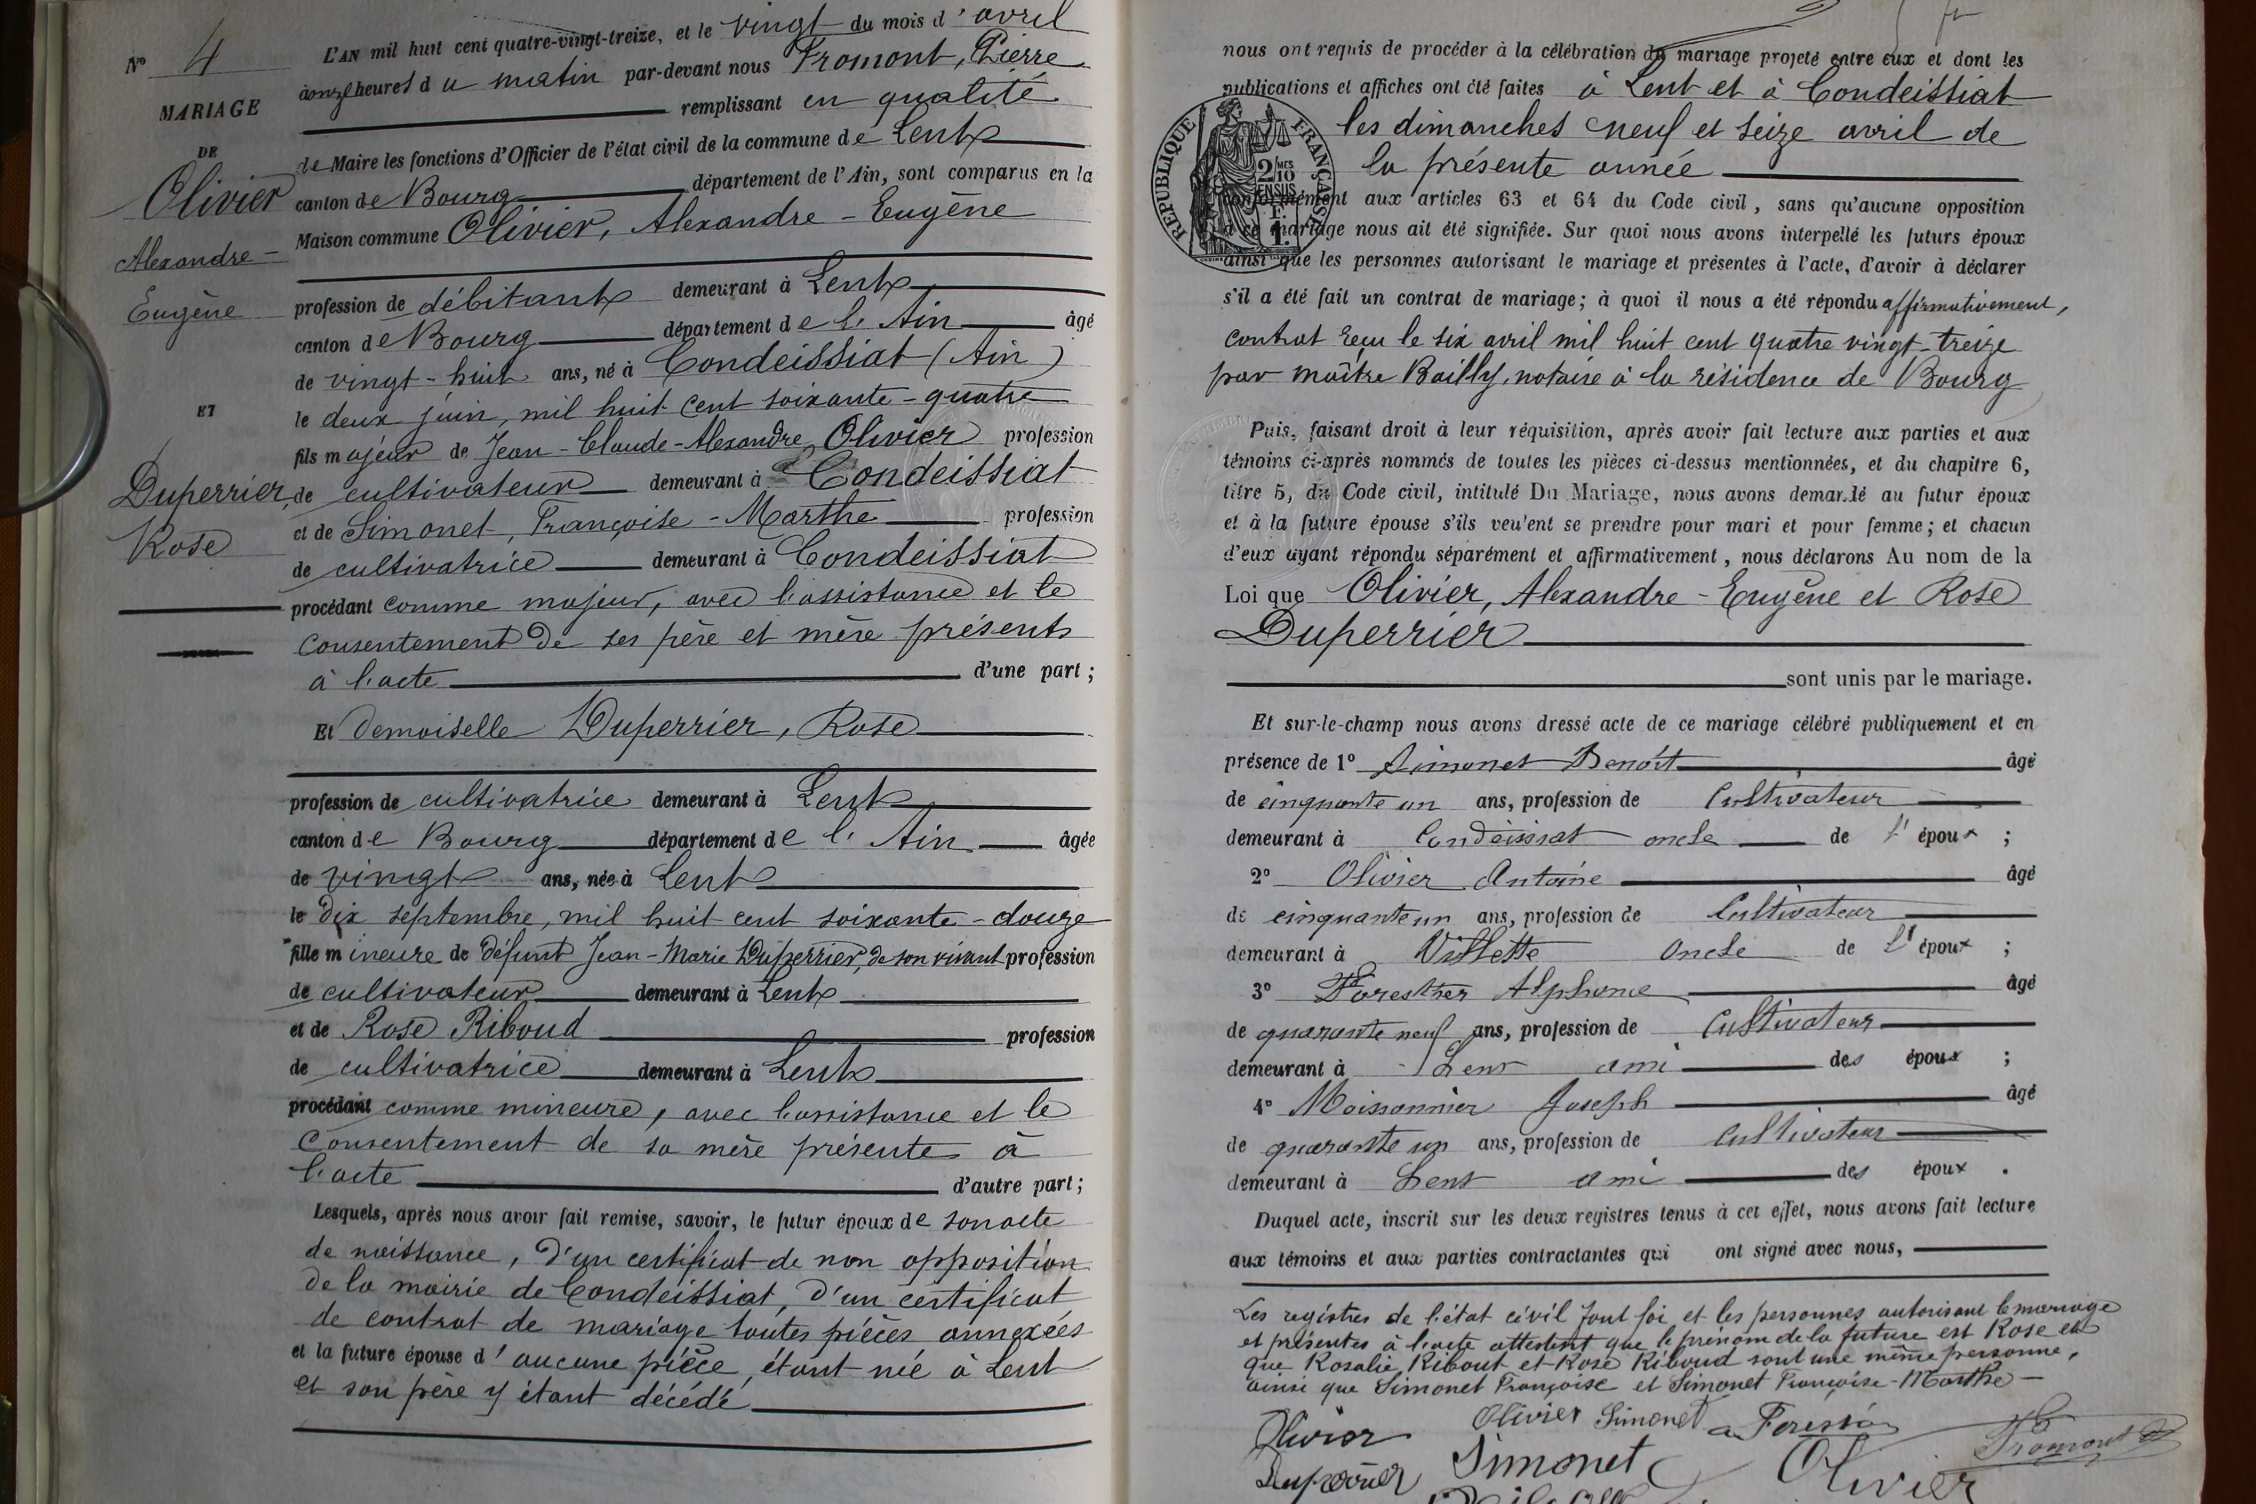 N° 4
MARIAGE
DE
Olivier
Alexandre-
Eugène
ET
Duperrier,
Rose
L'AN mil huit cent quatre-vingt-treize, et le vingt du mois d'avril
à onze heures du matin par-devant nous Fromont, Pierre
remplissant en qualité
de Maire les fonctions d'Officier de l'état civil de la commune de Lent
canton de Bourg département de l'Ain, sont comparus en la
Maison commune Olivier, Alexandre-Eugène
profession de débitant demeurant à Lent
canton de Bourg département de l'Ain âgé
de vingt-huit ans, né à Condeissiat (Ain)
le deux juin, mil huit cent soixante-quatre
fils majeur de Jean-Claude-Alexandre Olivier profession
de cultivateur demeurant à Condeissiat
et de Simonet, Françoise-Marthe profession
de cultivatrice demeurant à Condeissiat
procédant comme majeur, avec l'assistance et le
consentement de ses père et mère présents
à l'acte d'une part;
Et demoiselle Duperrier, Rose
profession de cultivatrice demeurant à Lent
canton de Bourg département de l'Ain âgée
de vingt ans, née à Lent
le dix septembre, mil huit cent soixante-douze
fille mineure de défunt Jean-Marie Duperrier, de son vivant profession
de cultivateur demeurant à Lent
et de Rose Riboud profession
de cultivatrice demeurant à Lent
procédant comme mineure, avec l'assistance et le
consentement de sa mère présente à
l'acte d'autre part;
Lesquels, après nous avoir fait remise, savoir, le futur époux de son acte
de naissance, d'un certificat de non opposition
de la mairie de Condeissiat, d'un certificat
de contrat de mariage toutes pièces annexées
et la future épouse d'aucune pièce, étant née à Lent
et son père y étant décédé
nous ont requis de procéder à la célébration du mariage projeté entre eux et dont les
publications et affiches ont été faites à Lent et à Condeissiat
les dimanches neuf et seize avril de
la présente année
RÉPUBLIQUE FRANÇAISE
2/10
EN SUS
1F.
conformément aux articles 63 et 64 du Code civil, sans qu'aucune opposition
à ce mariage nous ait été signifiée. Sur quoi nous avons interpellé les futurs époux
ainsi que les personnes autorisant le mariage et présentes à l'acte, d'avoir à déclarer
s'il a été fait un contrat de mariage; à quoi il nous a été répondu affirmativement,
contrat reçu le six avril mil huit cent quatre vingt-treize
par maître Bailly, notaire à la résidence de Bourg
Puis, faisant droit à leur réquisition, après avoir fait lecture aux parties et aux
témoins ci-après nommés de toutes les pièces ci-dessus mentionnées, et du chapitre 6,
titre 5, du Code civil, intitulé Du Mariage, nous avons demandé au futur époux
et à la future épouse s'ils veulent se prendre pour mari et pour femme; et chacun
d'eux ayant répondu séparément et affirmativement, nous déclarons Au nom de la
Loi que Olivier, Alexandre-Eugène et Rose
Duperrier
sont unis par le mariage.
Et sur-le-champ nous avons dressé acte de ce mariage célébré publiquement et en
présence de 1° Simonet Benoît âgé
de cinquante un ans, profession de Cultivateur
demeurant à Condeissiat oncle de l'époux;
2° Olivier Antoine âgé
de cinquante un ans, profession de Cultivateur
demeurant à Villette oncle de l'époux;
3° Foresthier Alphonse âgé
de quarante neuf ans, profession de Cultivateur
demeurant à Lent ami des époux;
4° Moissonnier Joseph âgé
de quarante un ans, profession de Cultivateur
demeurant à Lent ami des époux.
Duquel acte, inscrit sur les deux registres tenus à cet effet, nous avons fait lecture
aux témoins et aux parties contractantes qui ont signé avec nous,
Les registres de l'état civil font foi et les personnes autorisant le mariage
et présentes à l'acte attestent que le prénom de la future est Rose et
que Rosalie Ribout et Rose Riboud sont une même personne,
ainsi que Simonet Françoise et Simonet Françoise-Marthe
Olivier Olivier Simonet Fromont
Duperrier Simonet Olivier